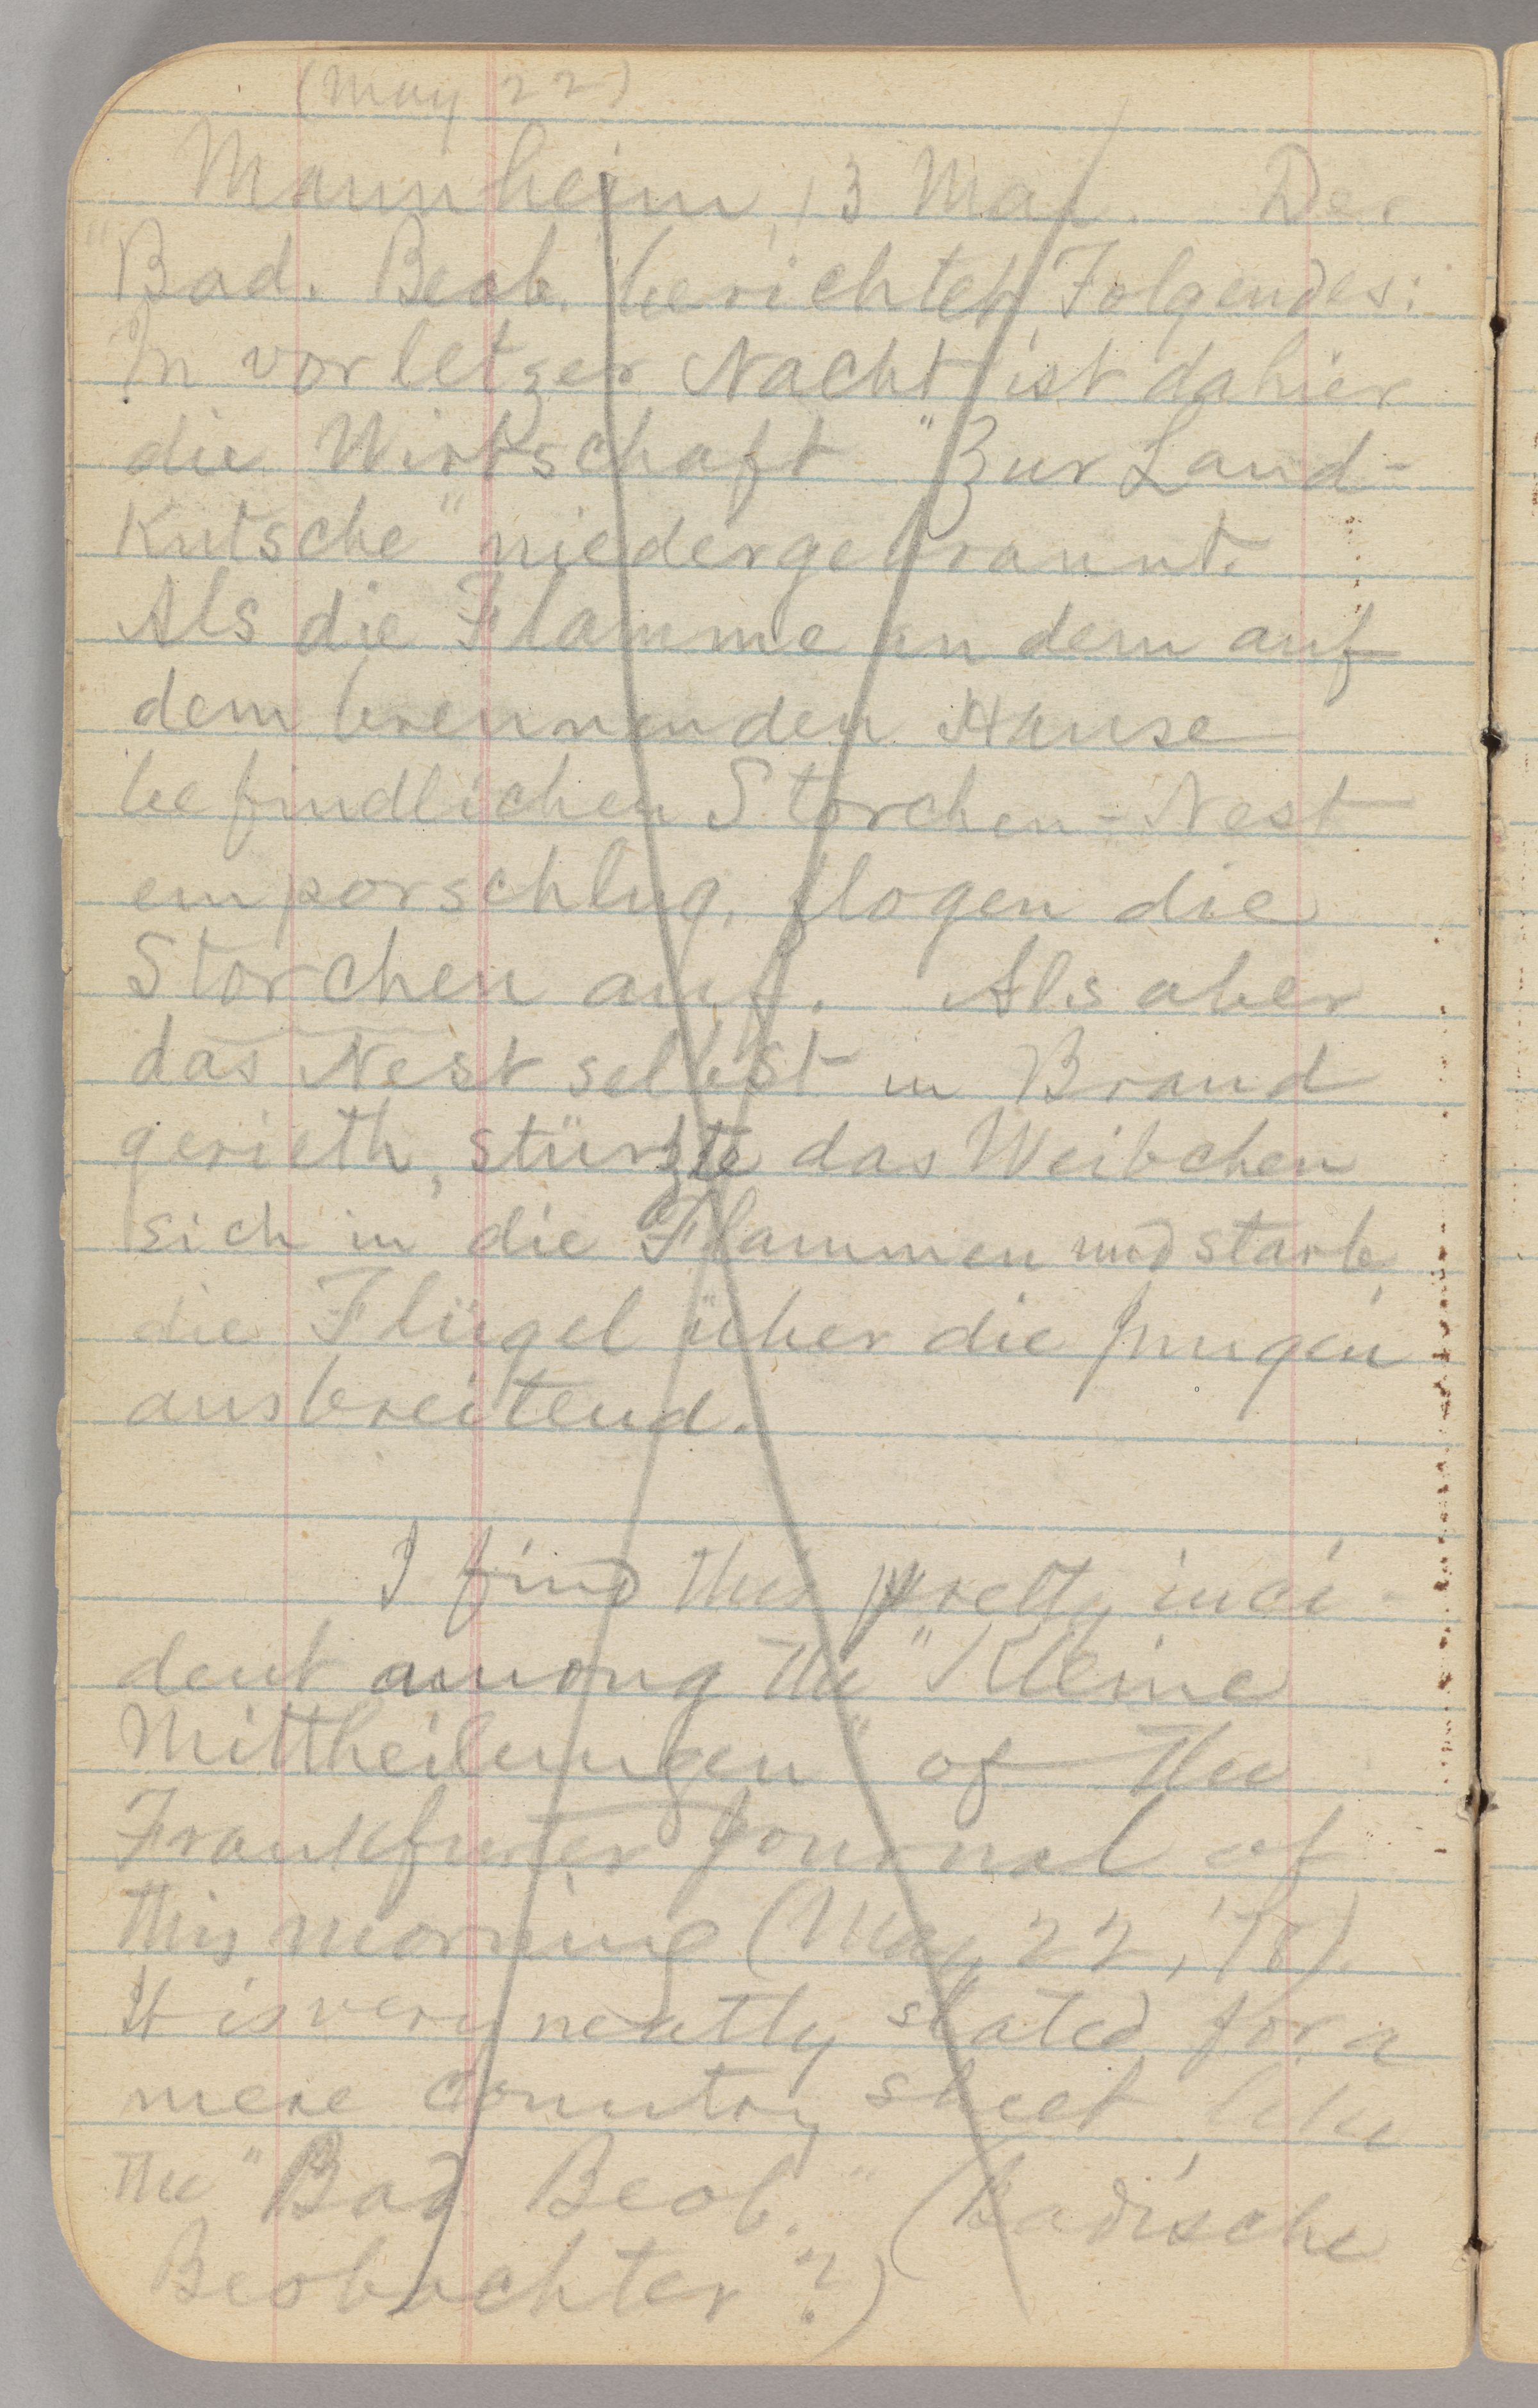 (May 22)
Mannheim, 13 Mai. Der
"Bad. Beob. berichtet Folgendes:
In vorletzer Nacht ist dahier
die Wirtschaft "Zur Land-
Kutsche" niedergebrannt.
Als die Flamme an dem auf
dem brennenden Hause
befindlichen Storchen-Nest
emporschlug, flogen die
Storchen auf. Als aber
das Nest selbst in Brand
gerieth, stürzte das Weibchen
sich in die Flammen und starb,
die Flügel über die Jungen
ausbreitend.
I find this pretty inci-
dent among the "Kleine
Mittheilungen" of the
Frankfurter Journal of
this morning (May 22, '78).
It is very neatly stated for a
mere country sheet like
the "Bad. Beob." (Badische
Beobachter?)